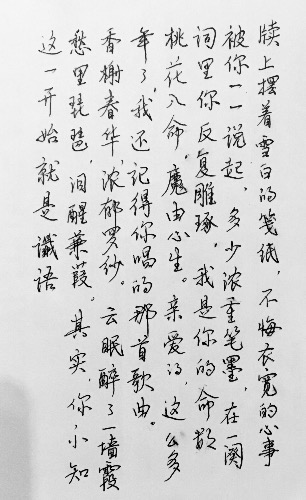 牍上摆着雪白的笺纸，不悔衣宽的心事
被你一一说起，多少浓重笔墨，在一阕
词里你反复雕琢，我是你的命ʼ
桃花入命，魔由心生。亲爱的，这么多
年了，我还记得你唱的那首歌曲。
香榭春华，浓郁罗纱。云眠醉了一墙霞
愁里琵琶，泪醒蒹葭。其实，你小知
这一开始就是谶语